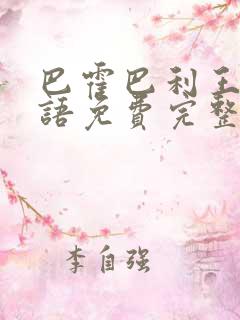 巴霍巴利王
語免費完整
李自强